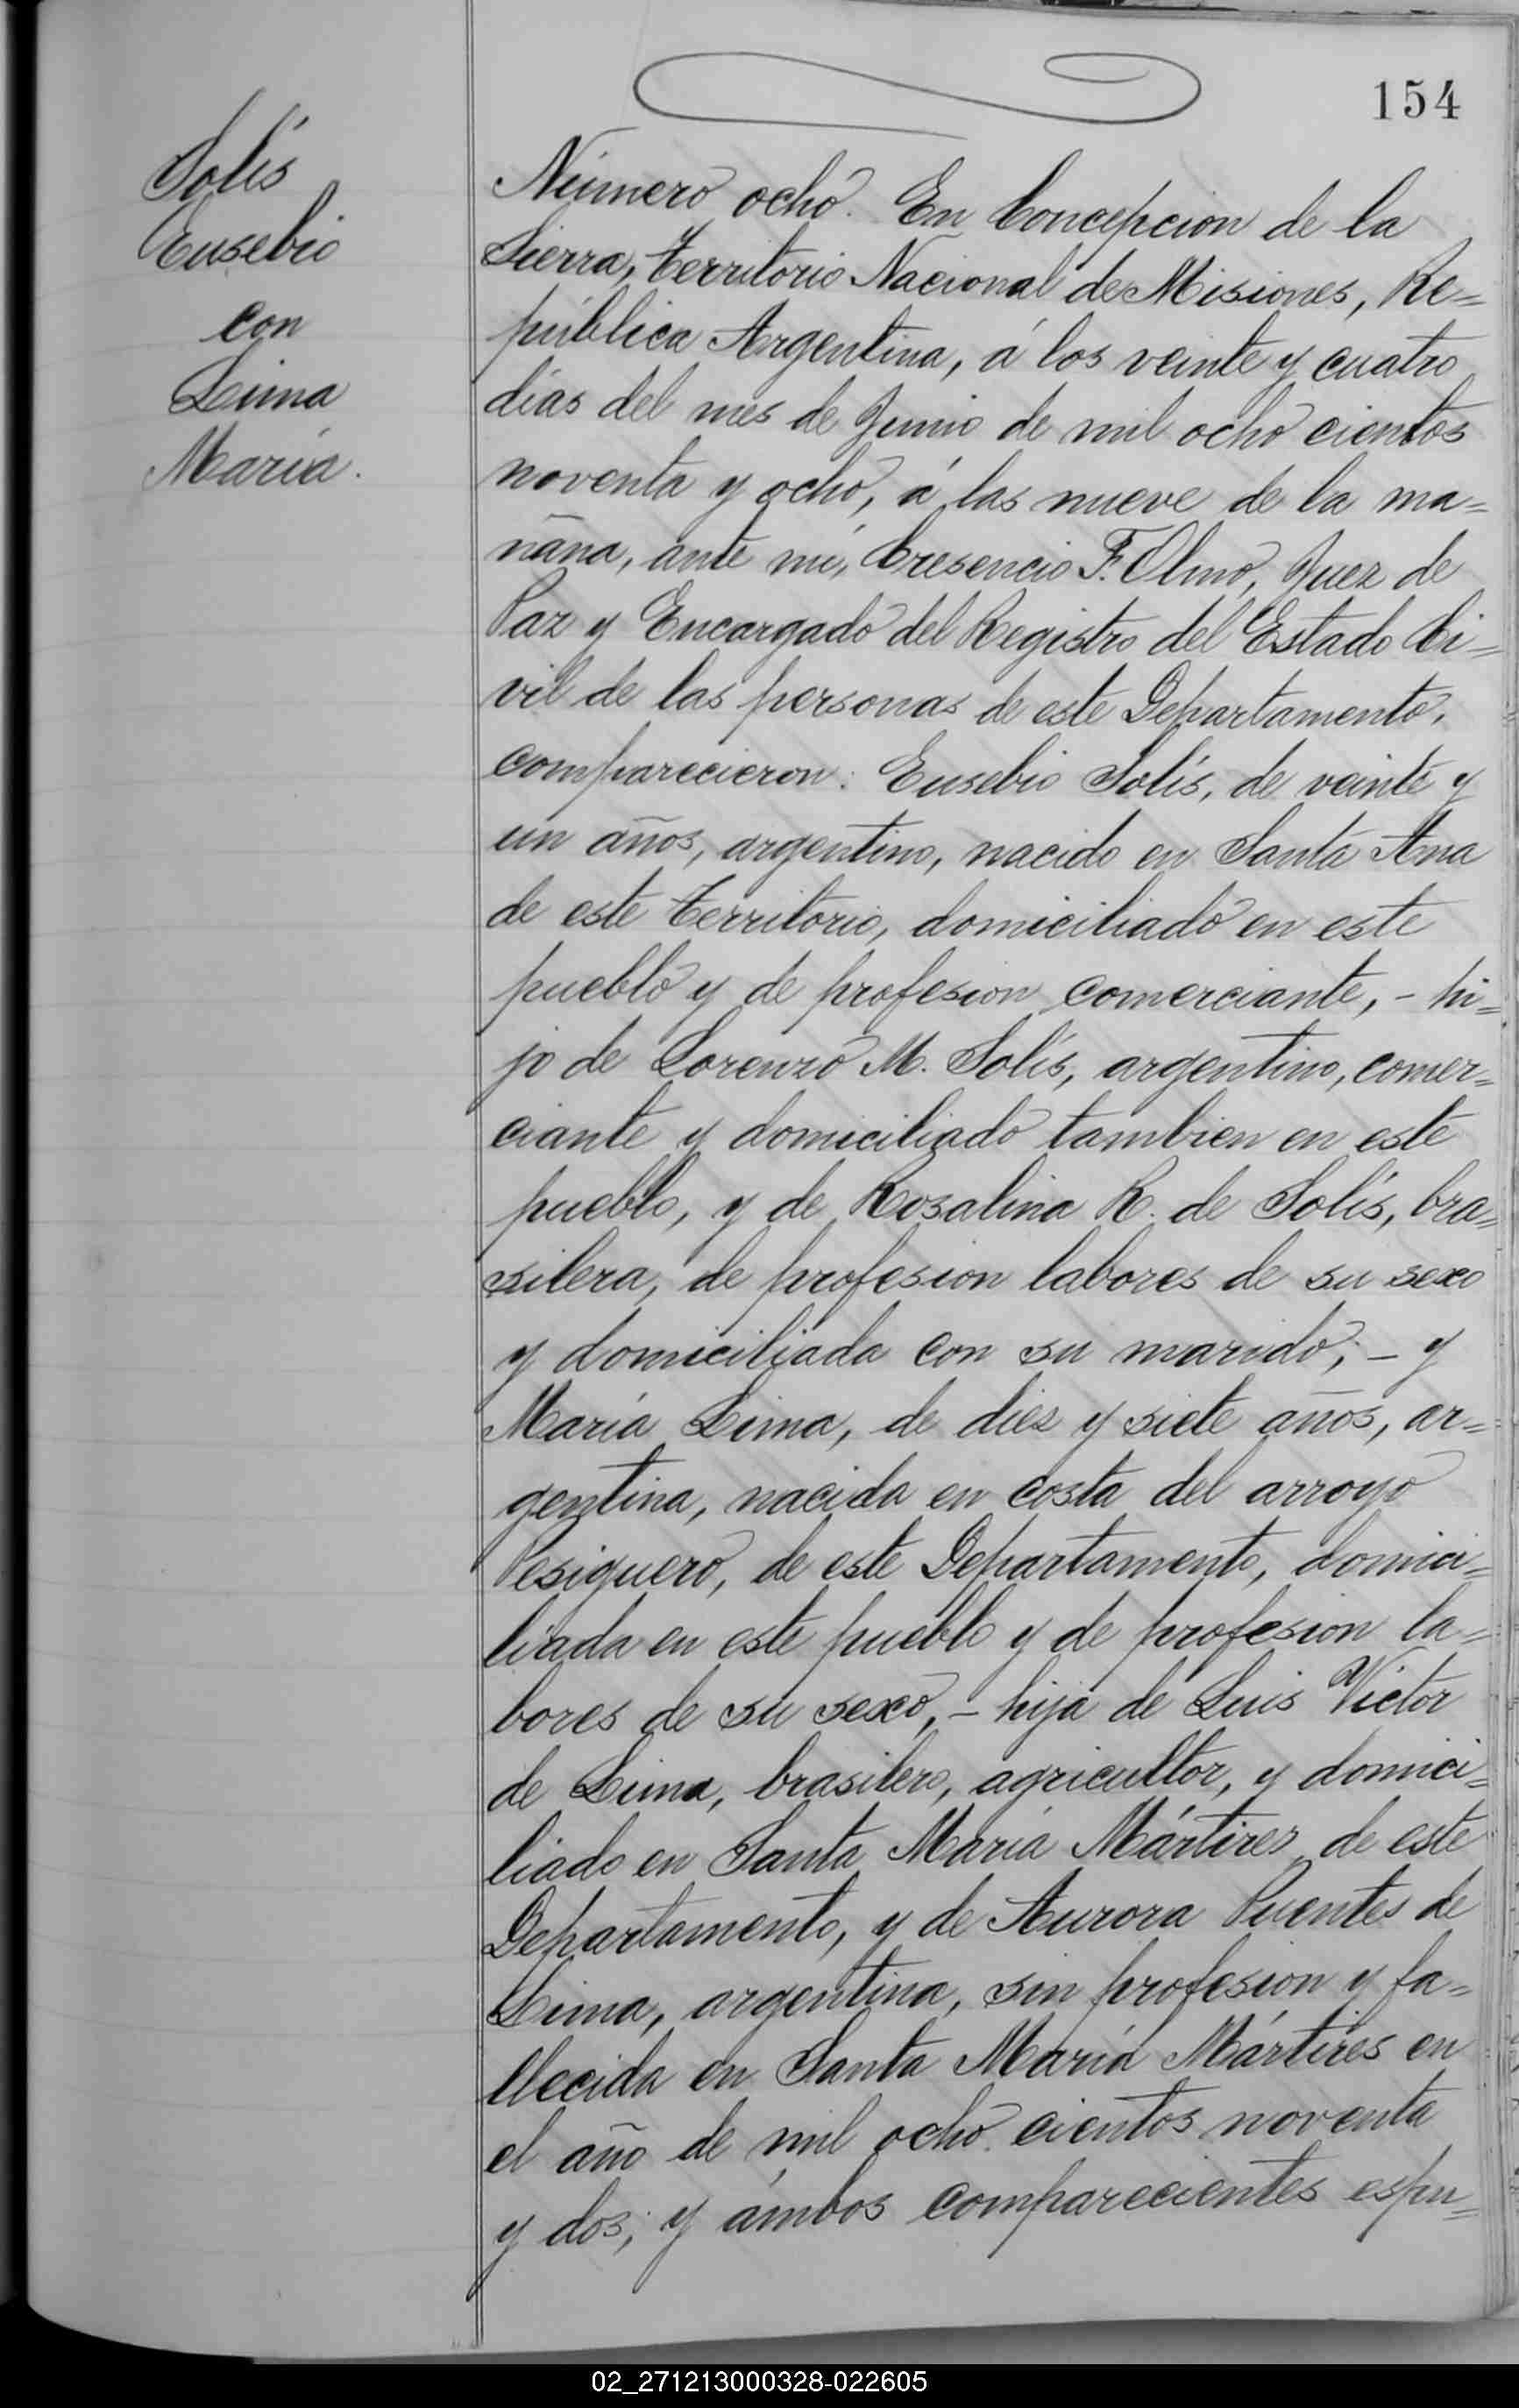 154
Solís
Eusebio
con
Lima
María.
Número ocho. En Concepcion de la
Sierra, Territorio Nacional de Misiones, Re=
pública Argentina, á los veinte y cuatro
días del mes de Junio de mil ocho cientos
noventa y ocho, á las nueve de la ma=
ñana, ante mí, Cresencio F. Olmo, Juez de
Paz y Encargado del Registro del Estado Ci=
vil de las personas de este Departamento,
comparecieron: Eusebio Solís, de veinte y
un años, argentino, nacido en Santa Ana
de este Territorio, domiciliado en este
pueblo y de profesion comerciante, - hi=
jo de Lorenzo M. Solís, argentino, comer=
ciante y domiciliado tambien en este
pueblo, y de Rosalina R. de Solís, bra=
silera, de profesion labores de su sexo
y domiciliada con su marido; - y
María Lima, de diez y siete años, ar=
gentina, nacida en costa del arroyo
Pesiguero, de este Departamento, domici=
liada en este pueblo y de profesion la=
bores de su sexo, - hija de Luis Victor
de Lima, brasilero, agricultor, y domici=
liado en Santa María Mártires de este
Departamento, y de Aurora Puentes de
Lima, argentina, sin profesion y fa=
llecida en Santa María Mártires en
el año de mil ocho cientos noventa
y dos; y ámbos comparecientes espu=
02_271213000328-022605